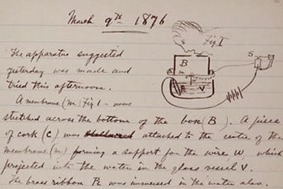 March 9th 1876
Fig. 1
The apparatus suggested
yesterday was made and
tried this afternoon.
A membrane (m) Fig 1 - was
stretched across the bottom of the box (B). A piece
of cork (c) was attached to the centre of the
membrane (m) forming a support for the wire W which
projected into the water in the glass vessel V.
The brass ribbon R was immersed in the water also.
B
S
V